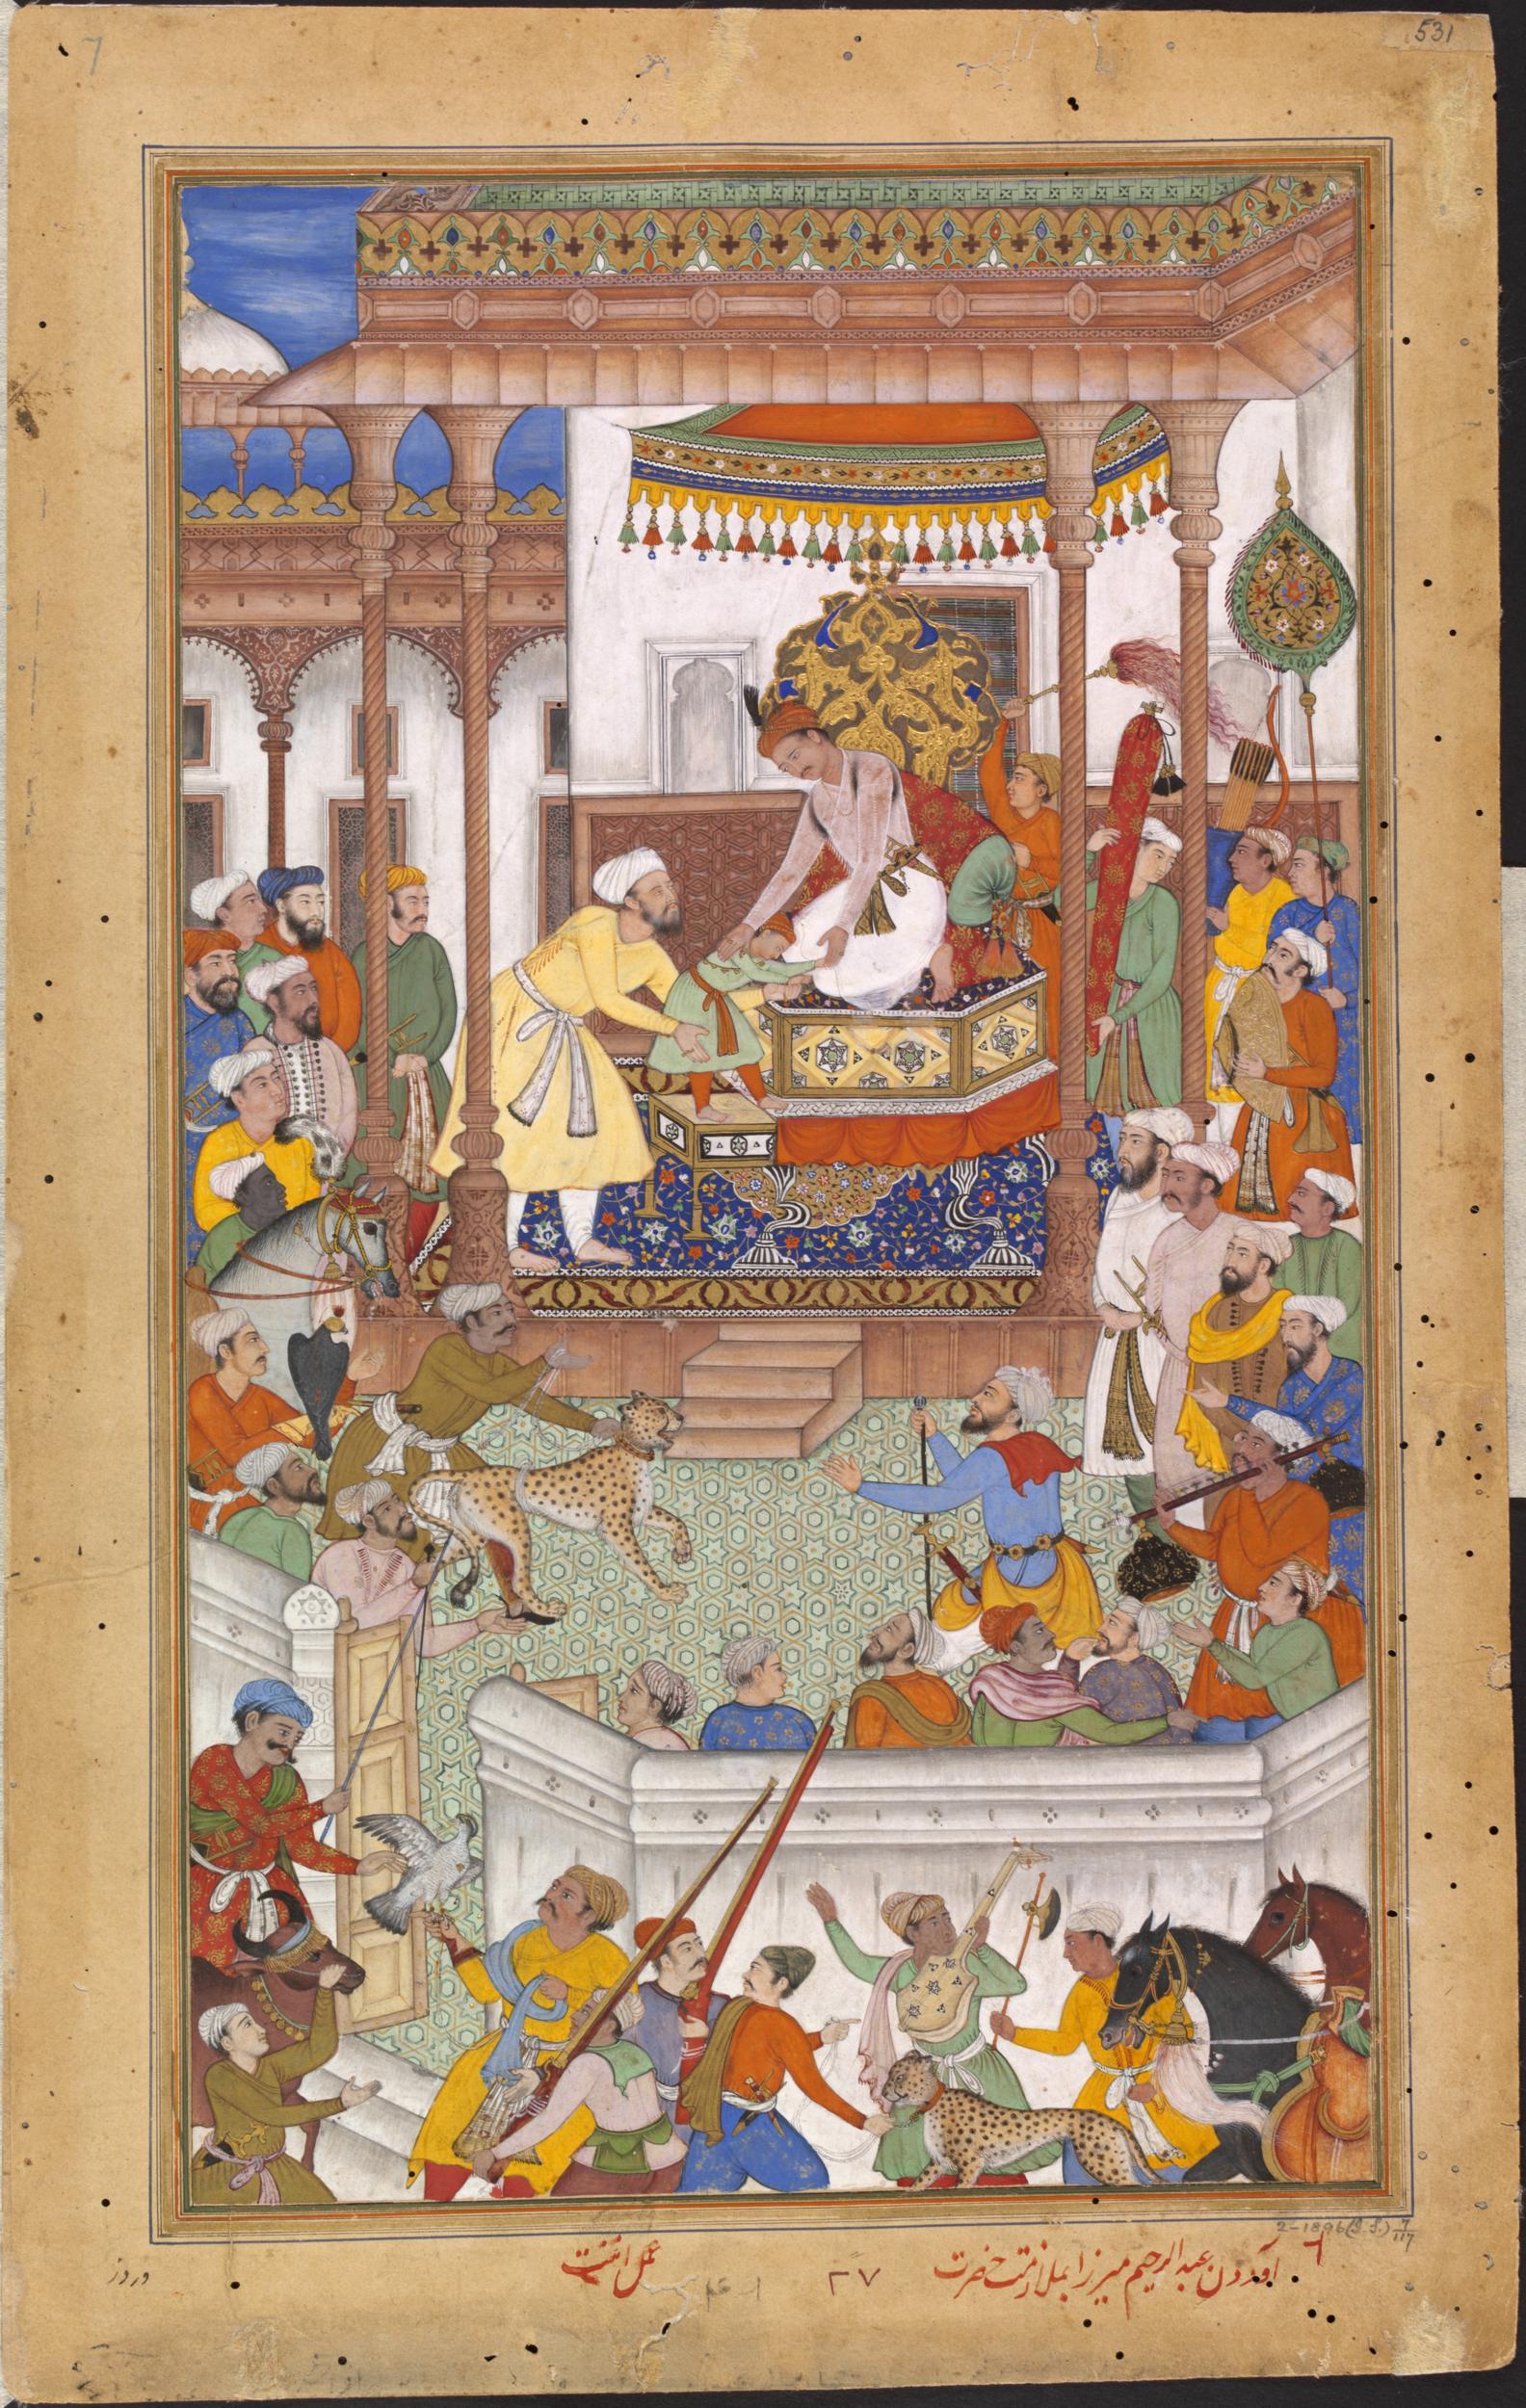 7
531
2-1896(I.S.) 7/117
آوردن عبدالرحیم میرزا بملازمت حضرت
۲۷
عمل اننت